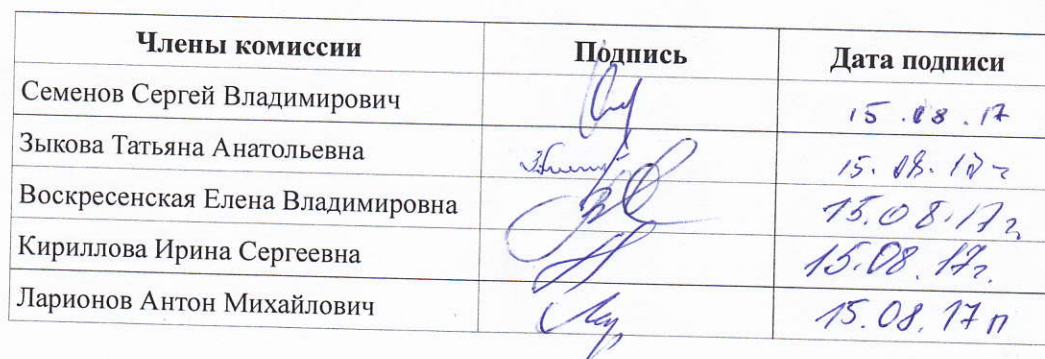 Члены комиссии Подпись Дата подписи
Семенов Сергей Владимирович 15.08.17
Зыкова Татьяна Анатольевна 15.08.17 г
Воскресенская Елена Владимировна 15.08.17 г
Кириллова Ирина Сергеевна 15.08.17 г.
Ларионов Антон Михайлович 15.08.17 п